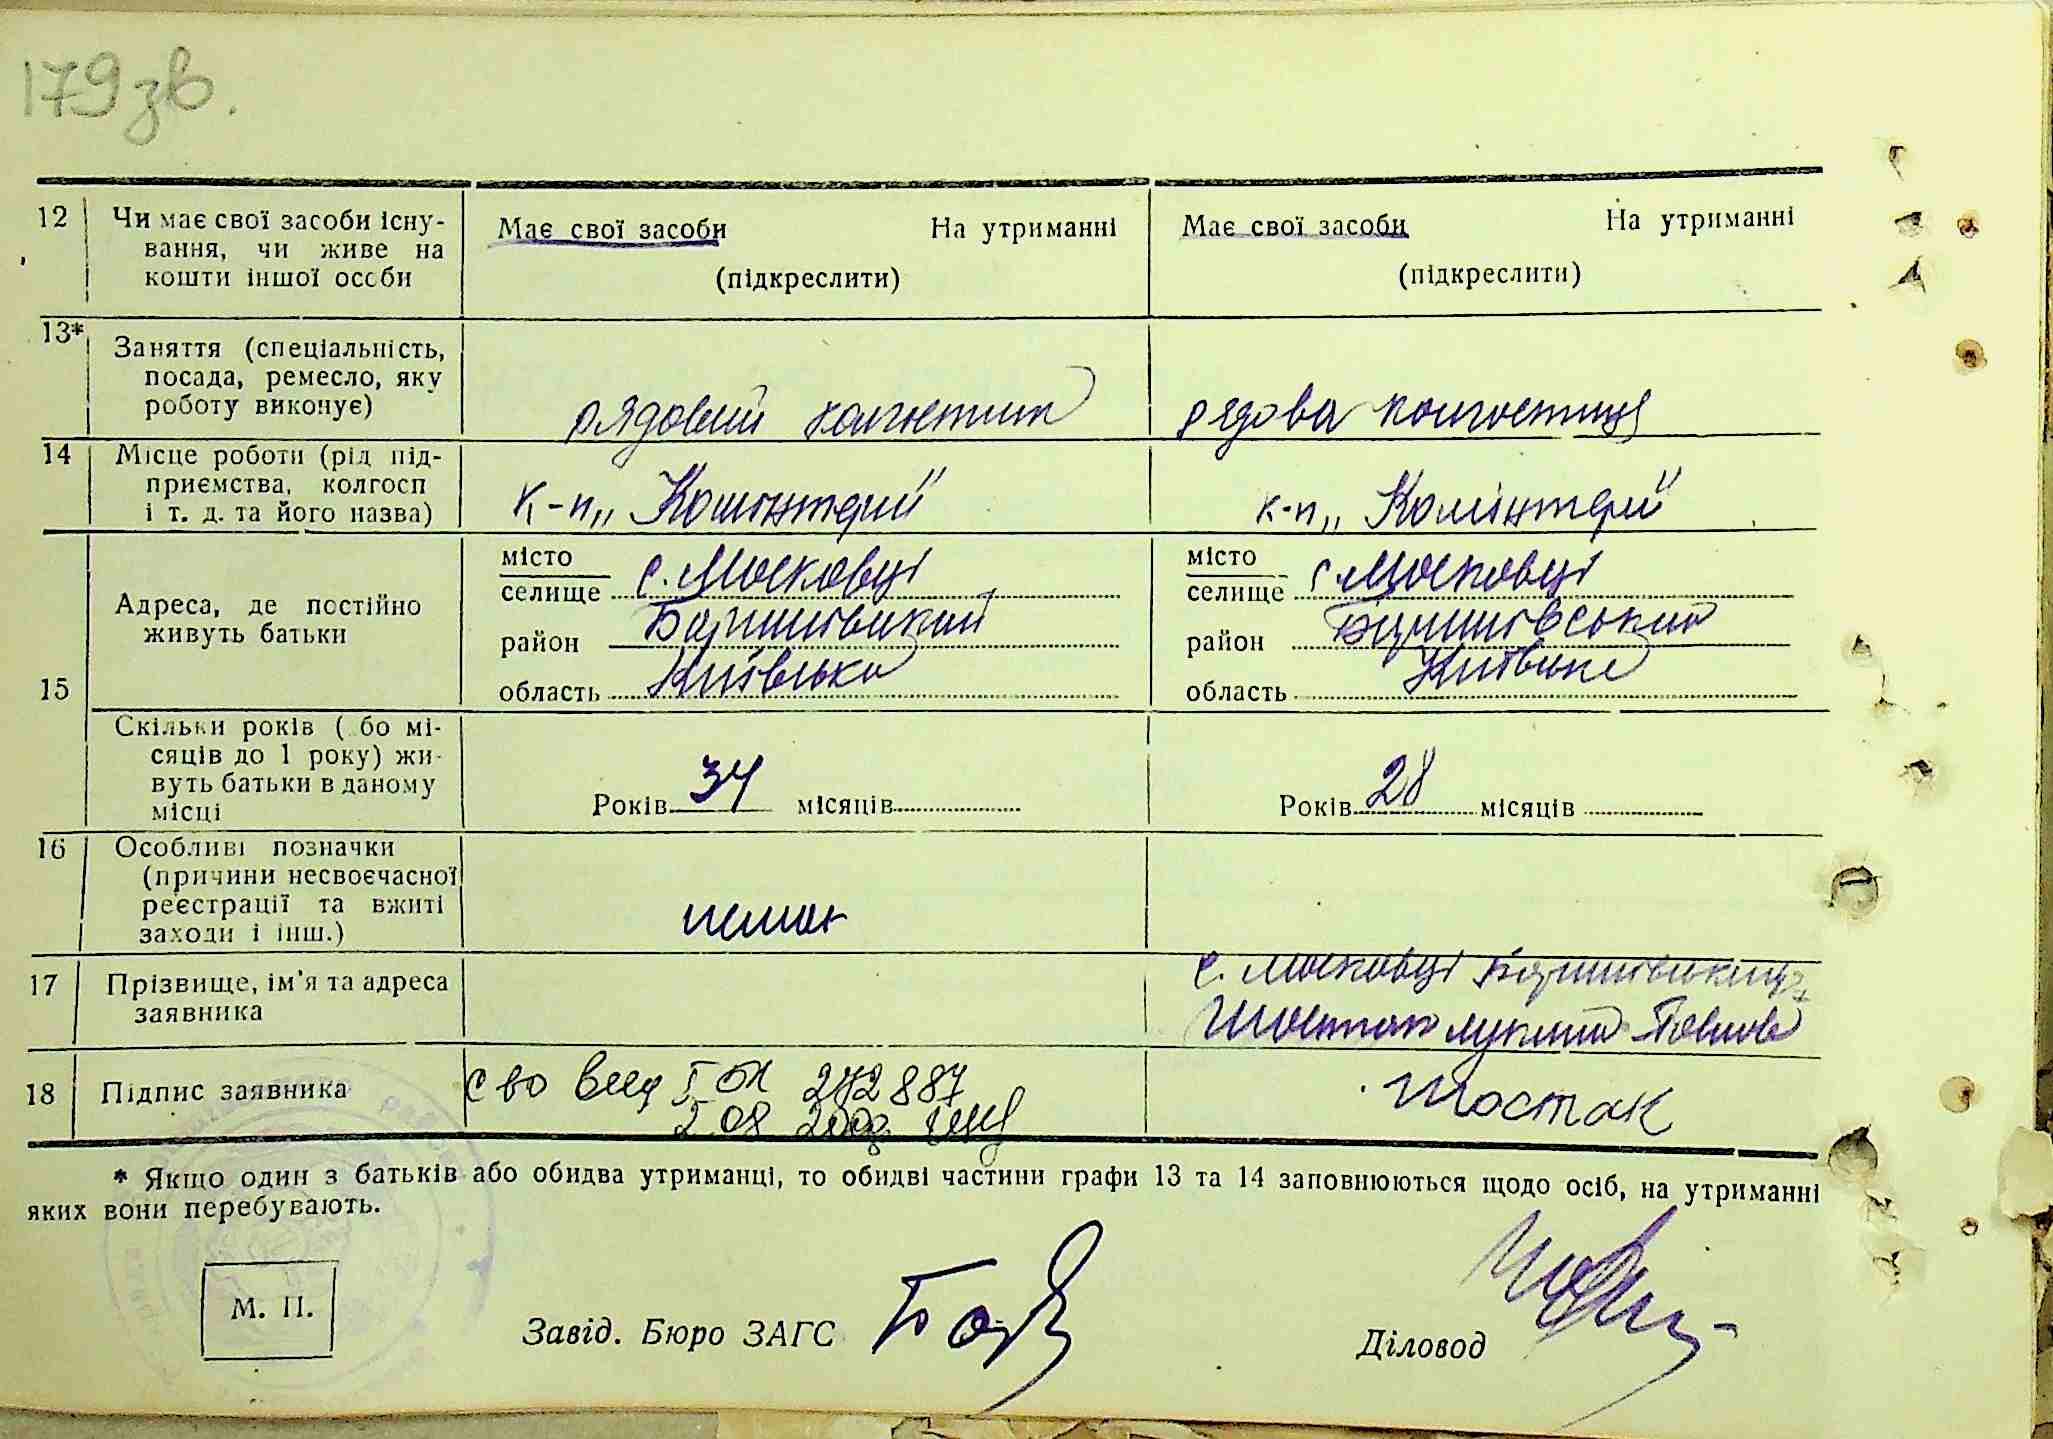 179 зв.
12 Чи має свої засоби існу-
вання, чи живе на
кошти іншої особи
Має свої засоби На утриманні
(підкреслити)
Має свої засоби На утриманні
(підкреслити)
13* Заняття (спеціальність,
посада, ремесло, яку
роботу виконує)
рядовий колгоспник
рядова колгоспниця
14 Місце роботи (рід під-
приємства, колгосп
і т. д. та його назва)
к-п „Комінтерн"
к-п „Комінтерн"
15
Адреса, де постійно
живуть батьки
місто
селище с. Московці
район Баришівський
область Київська
місто
селище с Московці
район Баришівський
область Київська
Скільки років ( бо мі-
сяців до 1 року) жи-
вуть батьки в даному
місці
Років 34 місяців
Років 28 місяців
16 Особливі позначки
(причини несвоєчасної
реєстрації та вжиті
заходи і інш.)
немає
17 Прізвище, ім'я та адреса
заявника
с. Московці
Шостак
18 Підпис заявника
С во выд І ОК 272887
Шостак
* Якщо один з батьків або обидва утриманці, то обидві частини графи 13 та 14 заповнюються щодо осіб, на утриманні
яких вони перебувають.
М. П.
Завід. Бюро ЗАГС
Діловод